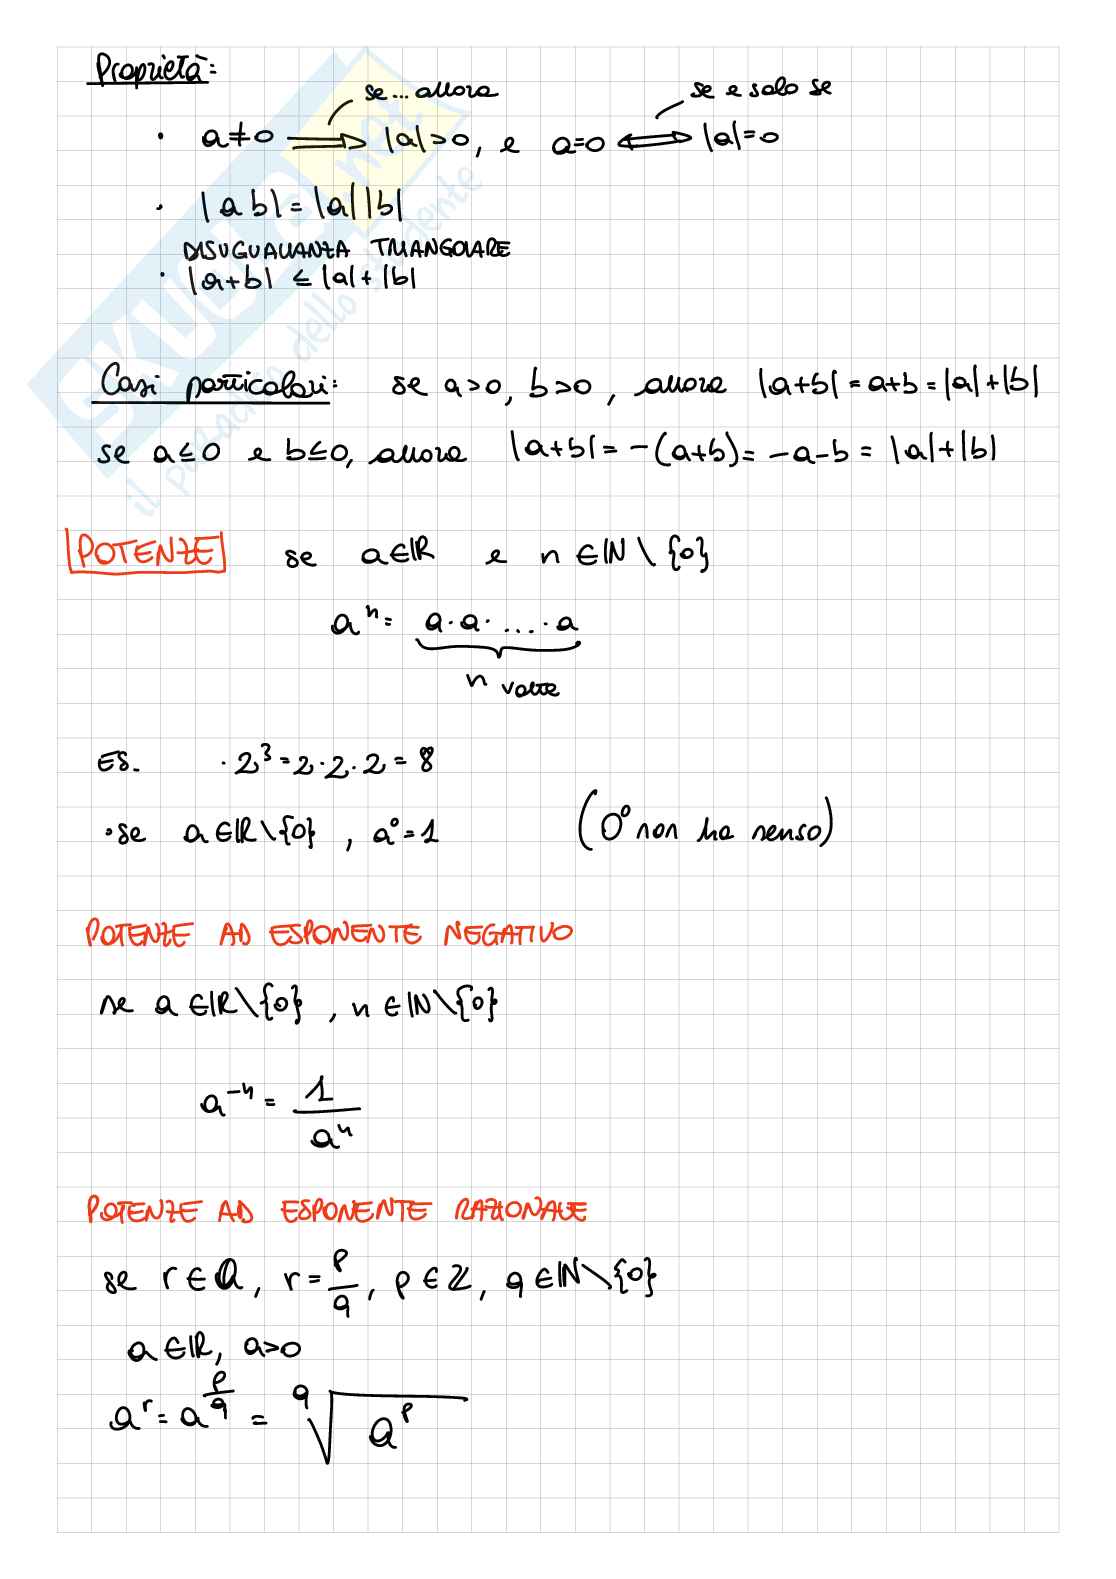 Proprietà:
se... allora
se e solo se
· a≠0 ⟹ |a|>0, e a=0 ⟺ |a|=0
· |a b|=|a||b|
DISUGUALIANZA TRIANGOLARE
· |a+b| ≤ |a|+|b|
Casi particolari: se a>0, b>0, allora |a+b|=a+b=|a|+|b|
se a≤0 e b≤0, allora |a+b|=-(a+b)=-a-b=|a|+|b|
POTENZE se a∈ℝ e n∈ℕ\{0}
aⁿ= a·a·...·a
n volte
ES. ·2³=2·2·2=8
·se a∈ℝ\{0}, a⁰=1 (0⁰ non ha senso)
POTENZE AD ESPONENTE NEGATIVO
se a∈ℝ\{0}, n∈ℕ\{0}
a⁻ⁿ = 1/aⁿ
POTENZE AD ESPONENTE RAZIONALE
se r∈ℚ, r=p/q, p∈ℤ, q∈ℕ\{0}
a∈ℝ, a>0
a^r = a^(p/q) = q√(a^p)
SKUOLA.net
il paradiso dello studente